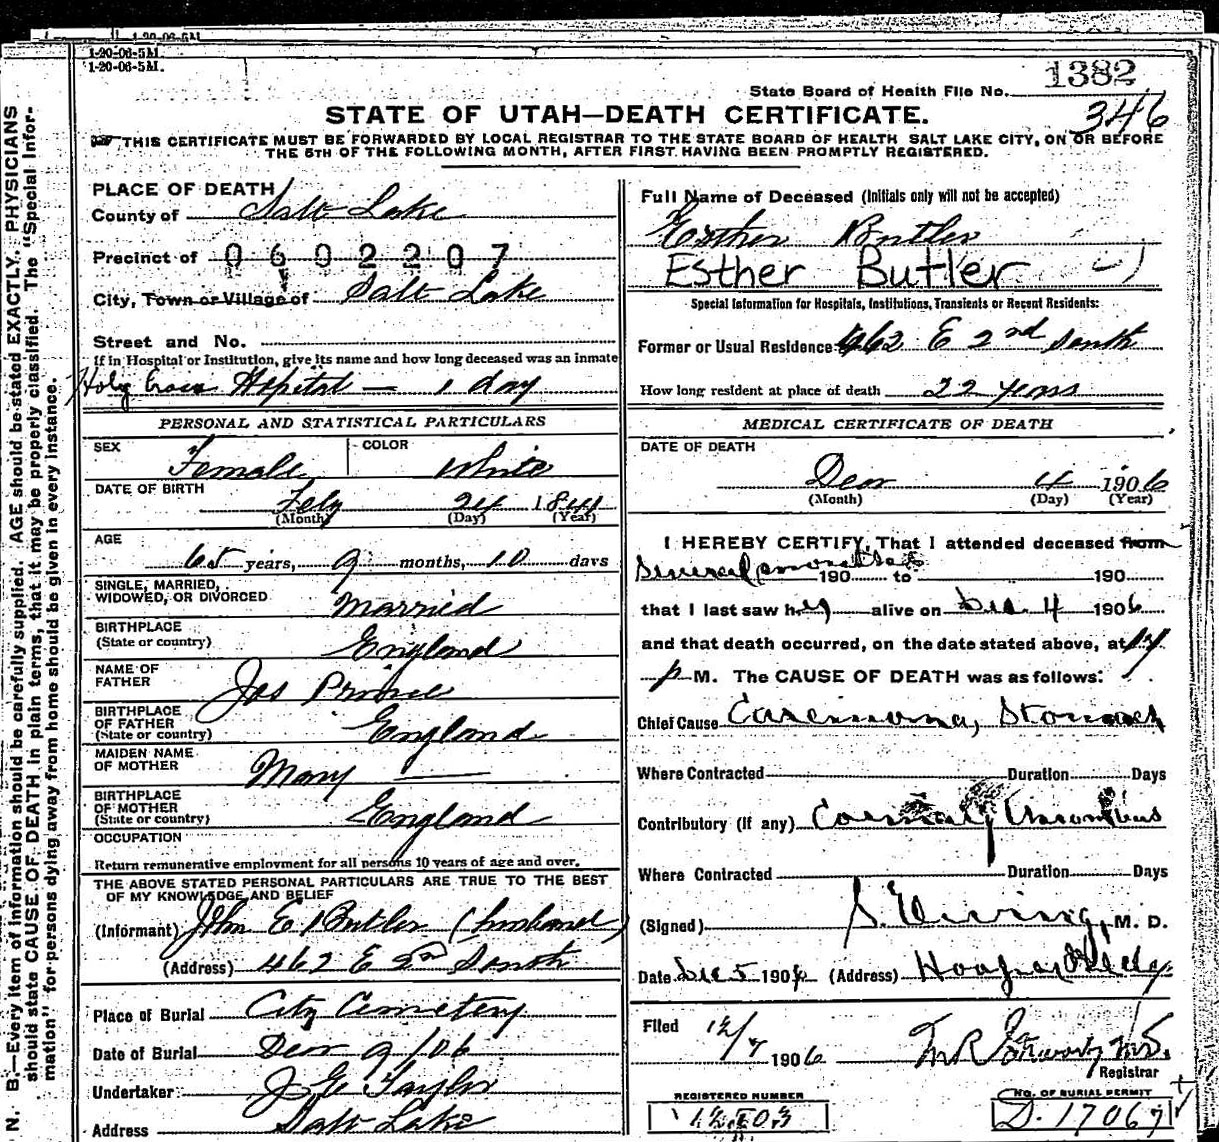 1-20-06-5M.
1-20-06-5M.
1382
State Board of Health File No.
346
STATE OF UTAH—DEATH CERTIFICATE.
THIS CERTIFICATE MUST BE FORWARDED BY LOCAL REGISTRAR TO THE STATE BOARD OF HEALTH SALT LAKE CITY, ON OR BEFORE
THE 5TH OF THE FOLLOWING MONTH, AFTER FIRST HAVING BEEN PROMPTLY REGISTERED.
N. B.—Every item of information should be carefully supplied. AGE should be stated EXACTLY. PHYSICIANS
should state CAUSE OF DEATH in plain terms, that it may be properly classified. The "Special Infor-
mation" for persons dying away from home should be given in every instance.
PLACE OF DEATH
County of Salt Lake
Precinct of 0602207
City, Town or Village of Salt Lake
Street and No.
If in Hospital or Institution, give its name and how long deceased was an inmate
Holy Cross Hospital — 1 day
PERSONAL AND STATISTICAL PARTICULARS
SEX Female COLOR White
DATE OF BIRTH Feby 24 1841
(Month) (Day) (Year)
AGE 65 years, 9 months, 10 days
SINGLE, MARRIED,
WIDOWED, OR DIVORCED Married
BIRTHPLACE
(State or country) England
NAME OF
FATHER Jas Prince
BIRTHPLACE
OF FATHER
(State or country) England
MAIDEN NAME
OF MOTHER Mary —
BIRTHPLACE
OF MOTHER
(State or country) England
OCCUPATION
Return remunerative employment for all persons 10 years of age and over.
THE ABOVE STATED PERSONAL PARTICULARS ARE TRUE TO THE BEST
OF MY KNOWLEDGE AND BELIEF
(Informant) John E Butler (husband)
(Address) 462 E 2nd South
Place of Burial City Cemetery
Date of Burial Decr 9/06
Undertaker J E Taylor
Address Salt Lake
Full Name of Deceased (Initials only will not be accepted)
Esther Butler
Esther Butler
Special Information for Hospitals, Institutions, Transients or Recent Residents:
Former or Usual Residence 462 E 2nd South
How long resident at place of death 22 years
MEDICAL CERTIFICATE OF DEATH
DATE OF DEATH
Decr 4 1906
(Month) (Day) (Year)
I HEREBY CERTIFY, That I attended deceased from
Several months 190 to 190
that I last saw her alive on Dec. 4 1906
and that death occurred, on the date stated above, at
p M. The CAUSE OF DEATH was as follows:
Chief Cause Carcinoma, Stomach
Where Contracted Duration Days
Contributory (If any) Coronary Thrombus
Where Contracted Duration Days
(Signed) S. Ewing, M. D.
Date Dec 5 1906 (Address) Hooper Bldg.
Filed 12/7 1906
Registrar
REGISTERED NUMBER
NO. OF BURIAL PERMIT
D. 17067